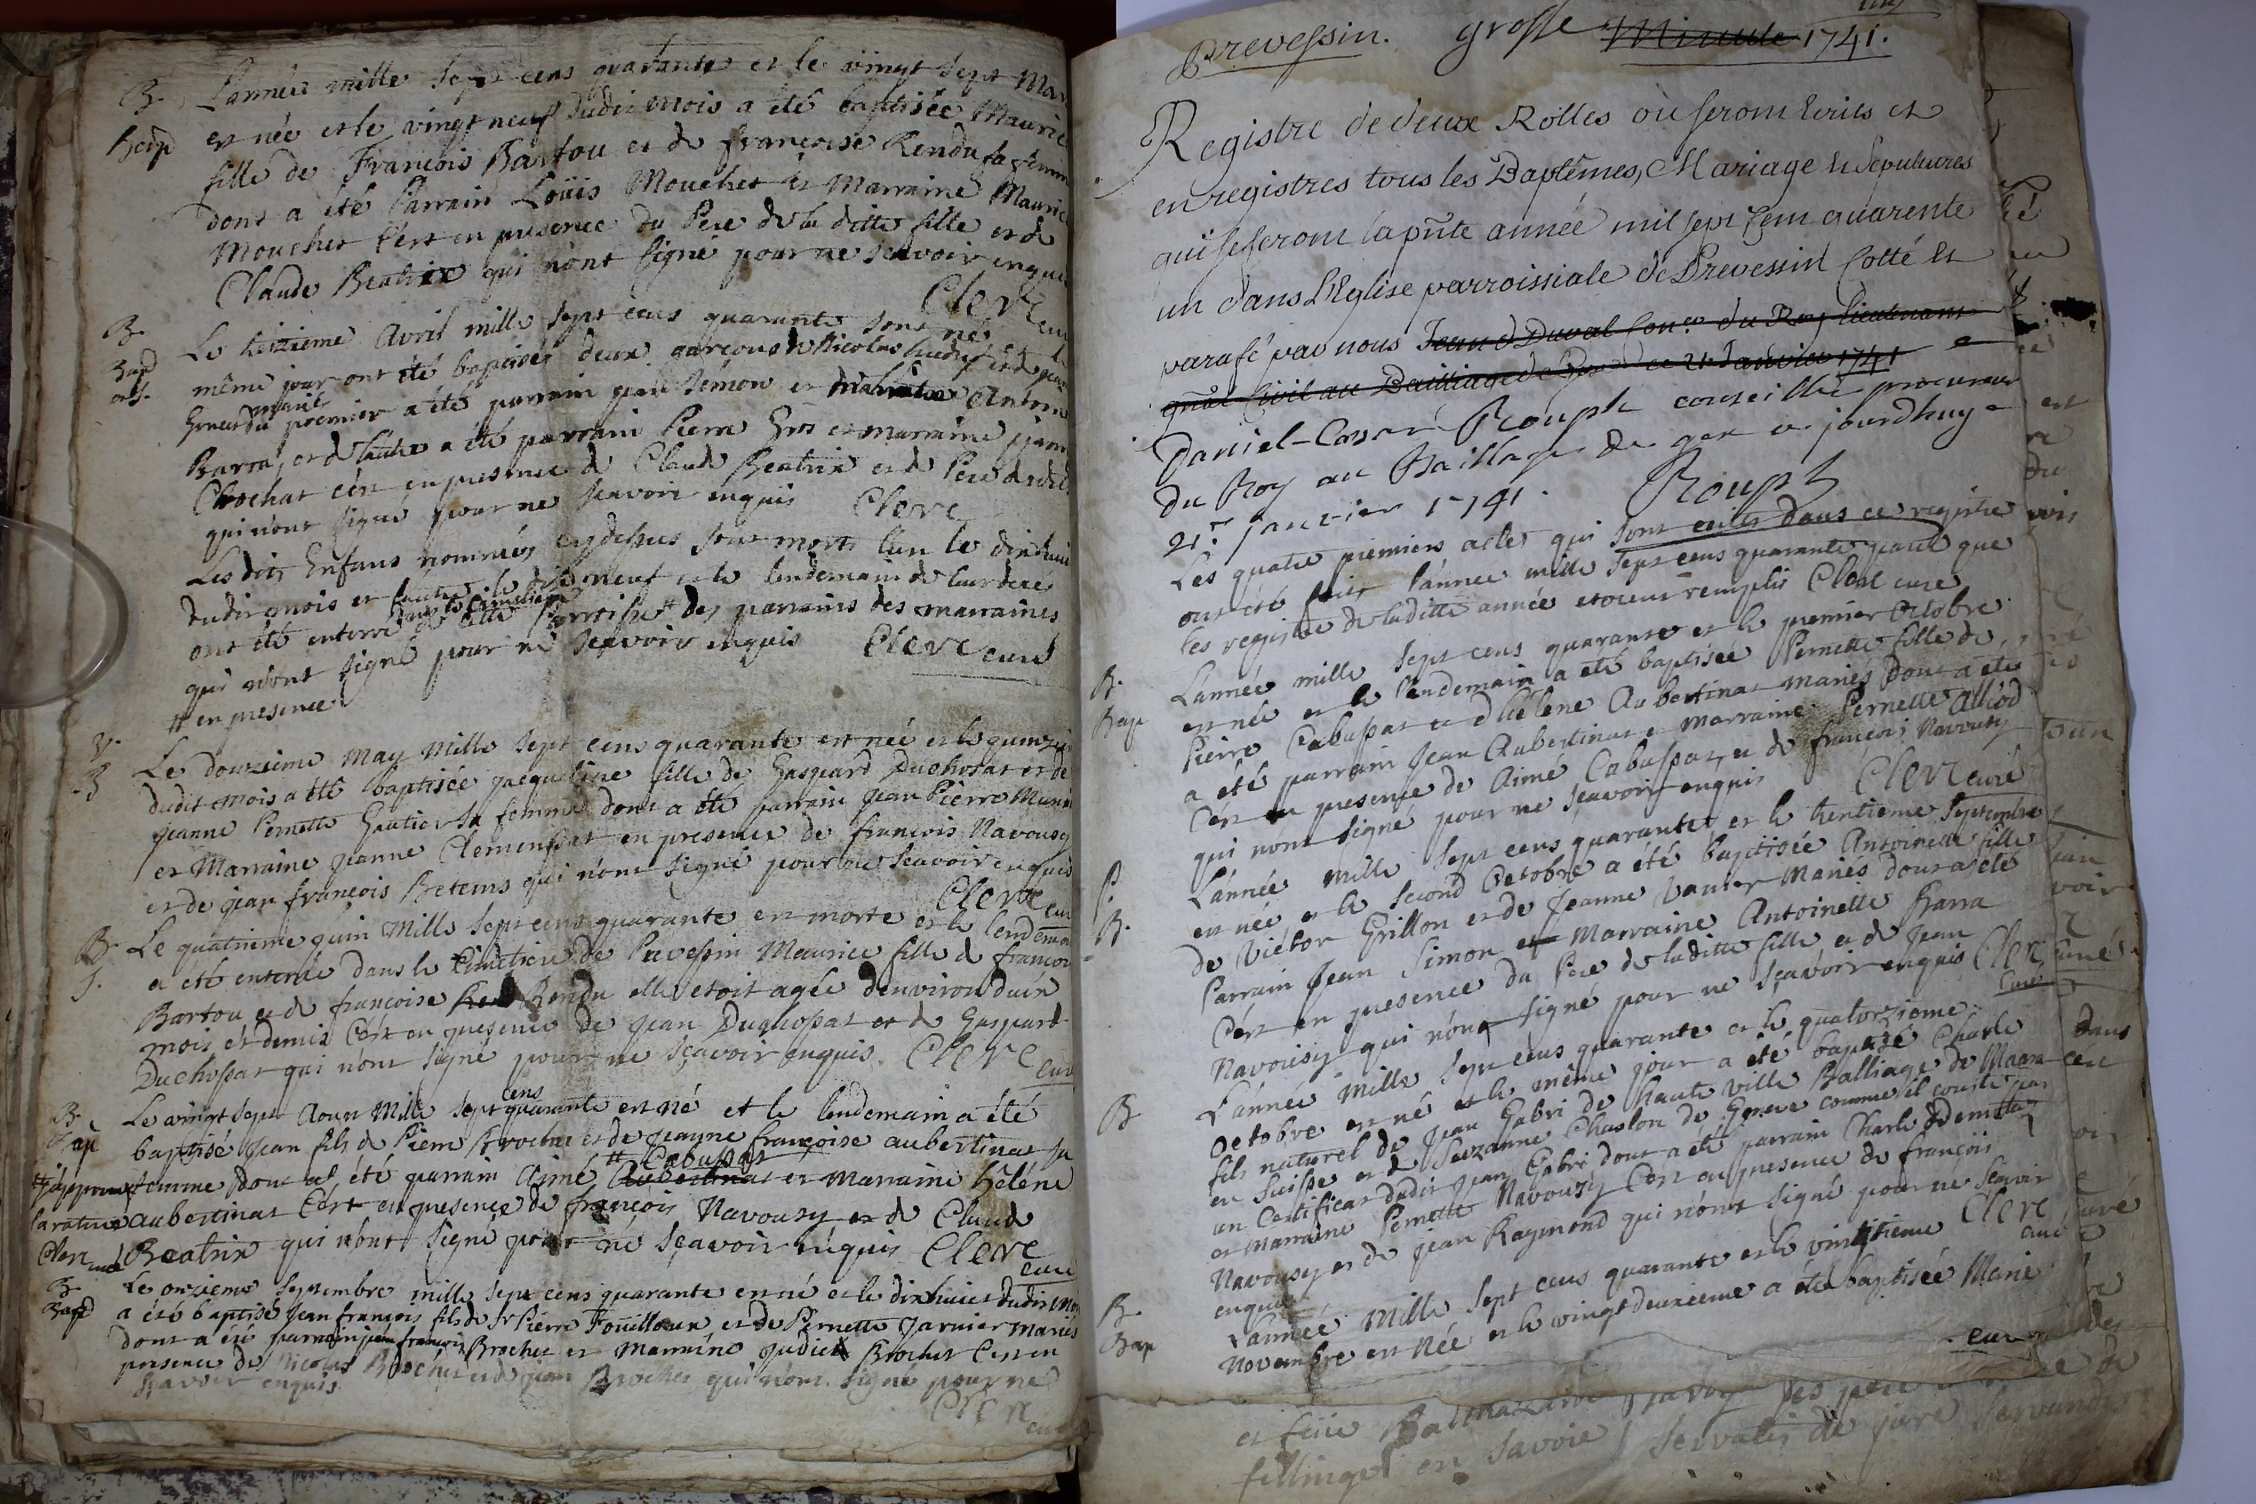 B. L'année mille sept cens quarante et le vingt sept Mars
Bap est née et le vingt neuf dudit mois a été baptisée Maurice
fille de François Bartou et de françoise Rendu sa femme
dont a été Parrain Loüis Mouchet et Marraine Maurice
Mouchet C'est en presence du Pere de la ditte fille et de
Claude Beatrix qui n'ont signé pour ne sçavoir enquis
Clerc curé
B. Le treizieme avril mille sept cens quarante sont nés
Bap même jour ont été baptisés deux garçons de Nicolas
du premier a été parrain jean Simon et Antoine
Barra, et de l'autre a été parrain Pierre Gros et marraine jeanne
Crochat c'est en presence de Claude Beatrix et de Pere
qui n'ont signé pour ne sçavoir enquis Clerc
Les dits Enfans nommés cy dessus sont morts l'un le dixhuit
dudit mois et l'autre le dixneuf et le lendemain de leur decés
ont été enterré dans le Cimetiere de cette Parroisse # des parrains des marraines
qui n'ont signé pour ne sçavoir enquis Clerc curé
# en presence
B Le douzieme May Mille sept cens quarante est née et le quinzieme
dudit mois a été baptisée jacqueline fille de Gaspard Duchosat et de
jeanne Pernette Gratier sa femme dont a été parrain Jean Pierre
et Marraine jeanne Clemensat en presence de françois Navousy
et de jean françois Betems qui n'ont signé pour ne sçavoir enquis
Clerc curé
S. Le quatrieme juin Mille sept cens quarante est morte et le lendemain
a été enterrée dans le Cimetiere de Prevessin Maurice fille de françois
Bartou et de françoise Rendu elle etoit agée d'environ deux
mois et demis C'est en presence de Jean Duchosat et de Gaspard
Duchosat qui n'ont signé pour ne sçavoir enquis. Clerc curé
B. Le vingt sept Aoust Mille sept cens quarante est né et le lendemain a été
Bap baptisé Jean fils de Pierre Brochut et de Jeanne françoise aubertinat sa
femme dont a été parrain Aimé # Cabussat Aubertinat et Marraine hélène
aubertinat C'est en presence de françois Navousy et de Claude
Beatrix qui n'ont signé pour ne sçavoir enquis Clerc curé
# j'approuve la rature Clerc curé
B. Le onzieme Septembre mille sept cens quarante est né et le dixhuict dudit mois
Bap a été baptisé Jean françois fils de Sr Pierre Foüilloux et de Pernette Garnier mariés
dont a été parrain jean françois Brochet et marraine judict Brochet C'est en
presence de Nicolas Brochet et de jean Brochet qui n'ont signé pour ne
sçavoir enquis.
Clerc curé
Prevessin. grosse Minute 1741.
Registre de deux Rolles où seront Ecrits et
enregistres tous les Baptêmes, Mariage & Sepultures
qui se feront la pñte année mil sept Cent quarente
un dans L'Eglise parroissiale de Prevessin Cotté et
parafé par nous Jean Duval Conr. du Roy Lieutenant
gñal Civil au Bailliage de Gex ce 21 Janvier 1741
Daniel-Cesar Rouph conseillé procureur
du Roy au Baillage de gex ce jourdhuy
21.e janvier 1741. Rouph
Les quatre premiers actes qui sont ecrits dans ce registre
ont été faits l'année mille sept cens quarante parce que
les registre de laditte année etoient remplis Clerc curé
B. L'année mille sept cens quarante et le premier Octobre
Bap est née et le lendemain a été baptisée Pernette fille de
Pierre Cabussat et d'hélène Aubertinat mariés dont a été
a été parrain Jean Aubertinat et marraine Pernette Alliod
C'est en presence de Aimé Cabussat, et de françois Navousy
qui n'ont signé pour ne sçavoir enquis Clerc curé
L'année mille sept cens quarante et le trentieme Septembre
B. est née et le second Octobre a été baptisée Antoinette fille
de Victor Grillon et de Jeanne Vanier Mariés dont a été
Parrain Jean Simon et Marraine Antoinette Barra
C'est en presence du Pere de laditte fille et de Jean
Navousy qui n'ont signé pour ne sçavoir enquis Clerc
curé
B L'année Mille sept cens quarante et le quatorzieme
Octobre est né et le même jour a été baptisé Charle
fils naturel de Jean Gabri de haute ville Balliage de
en Suisse et de Suzanne Chaslon de Geneve comme il conste par
un Certificat dudit Jean Gabri dont a été parrain Charle
et Marraine Pernette Navousy C'est en presence de françois
Navousy et de jean Raymond qui n'ont signé pour ne sçavoir
enquis Clerc curé
B. L'année Mille sept cens quarante et le vingtieme
Bap Novembre est Née et le vingtdeuxieme a été baptisée Marie
et feüe
fillinges en Savoie servatis de jure servandis